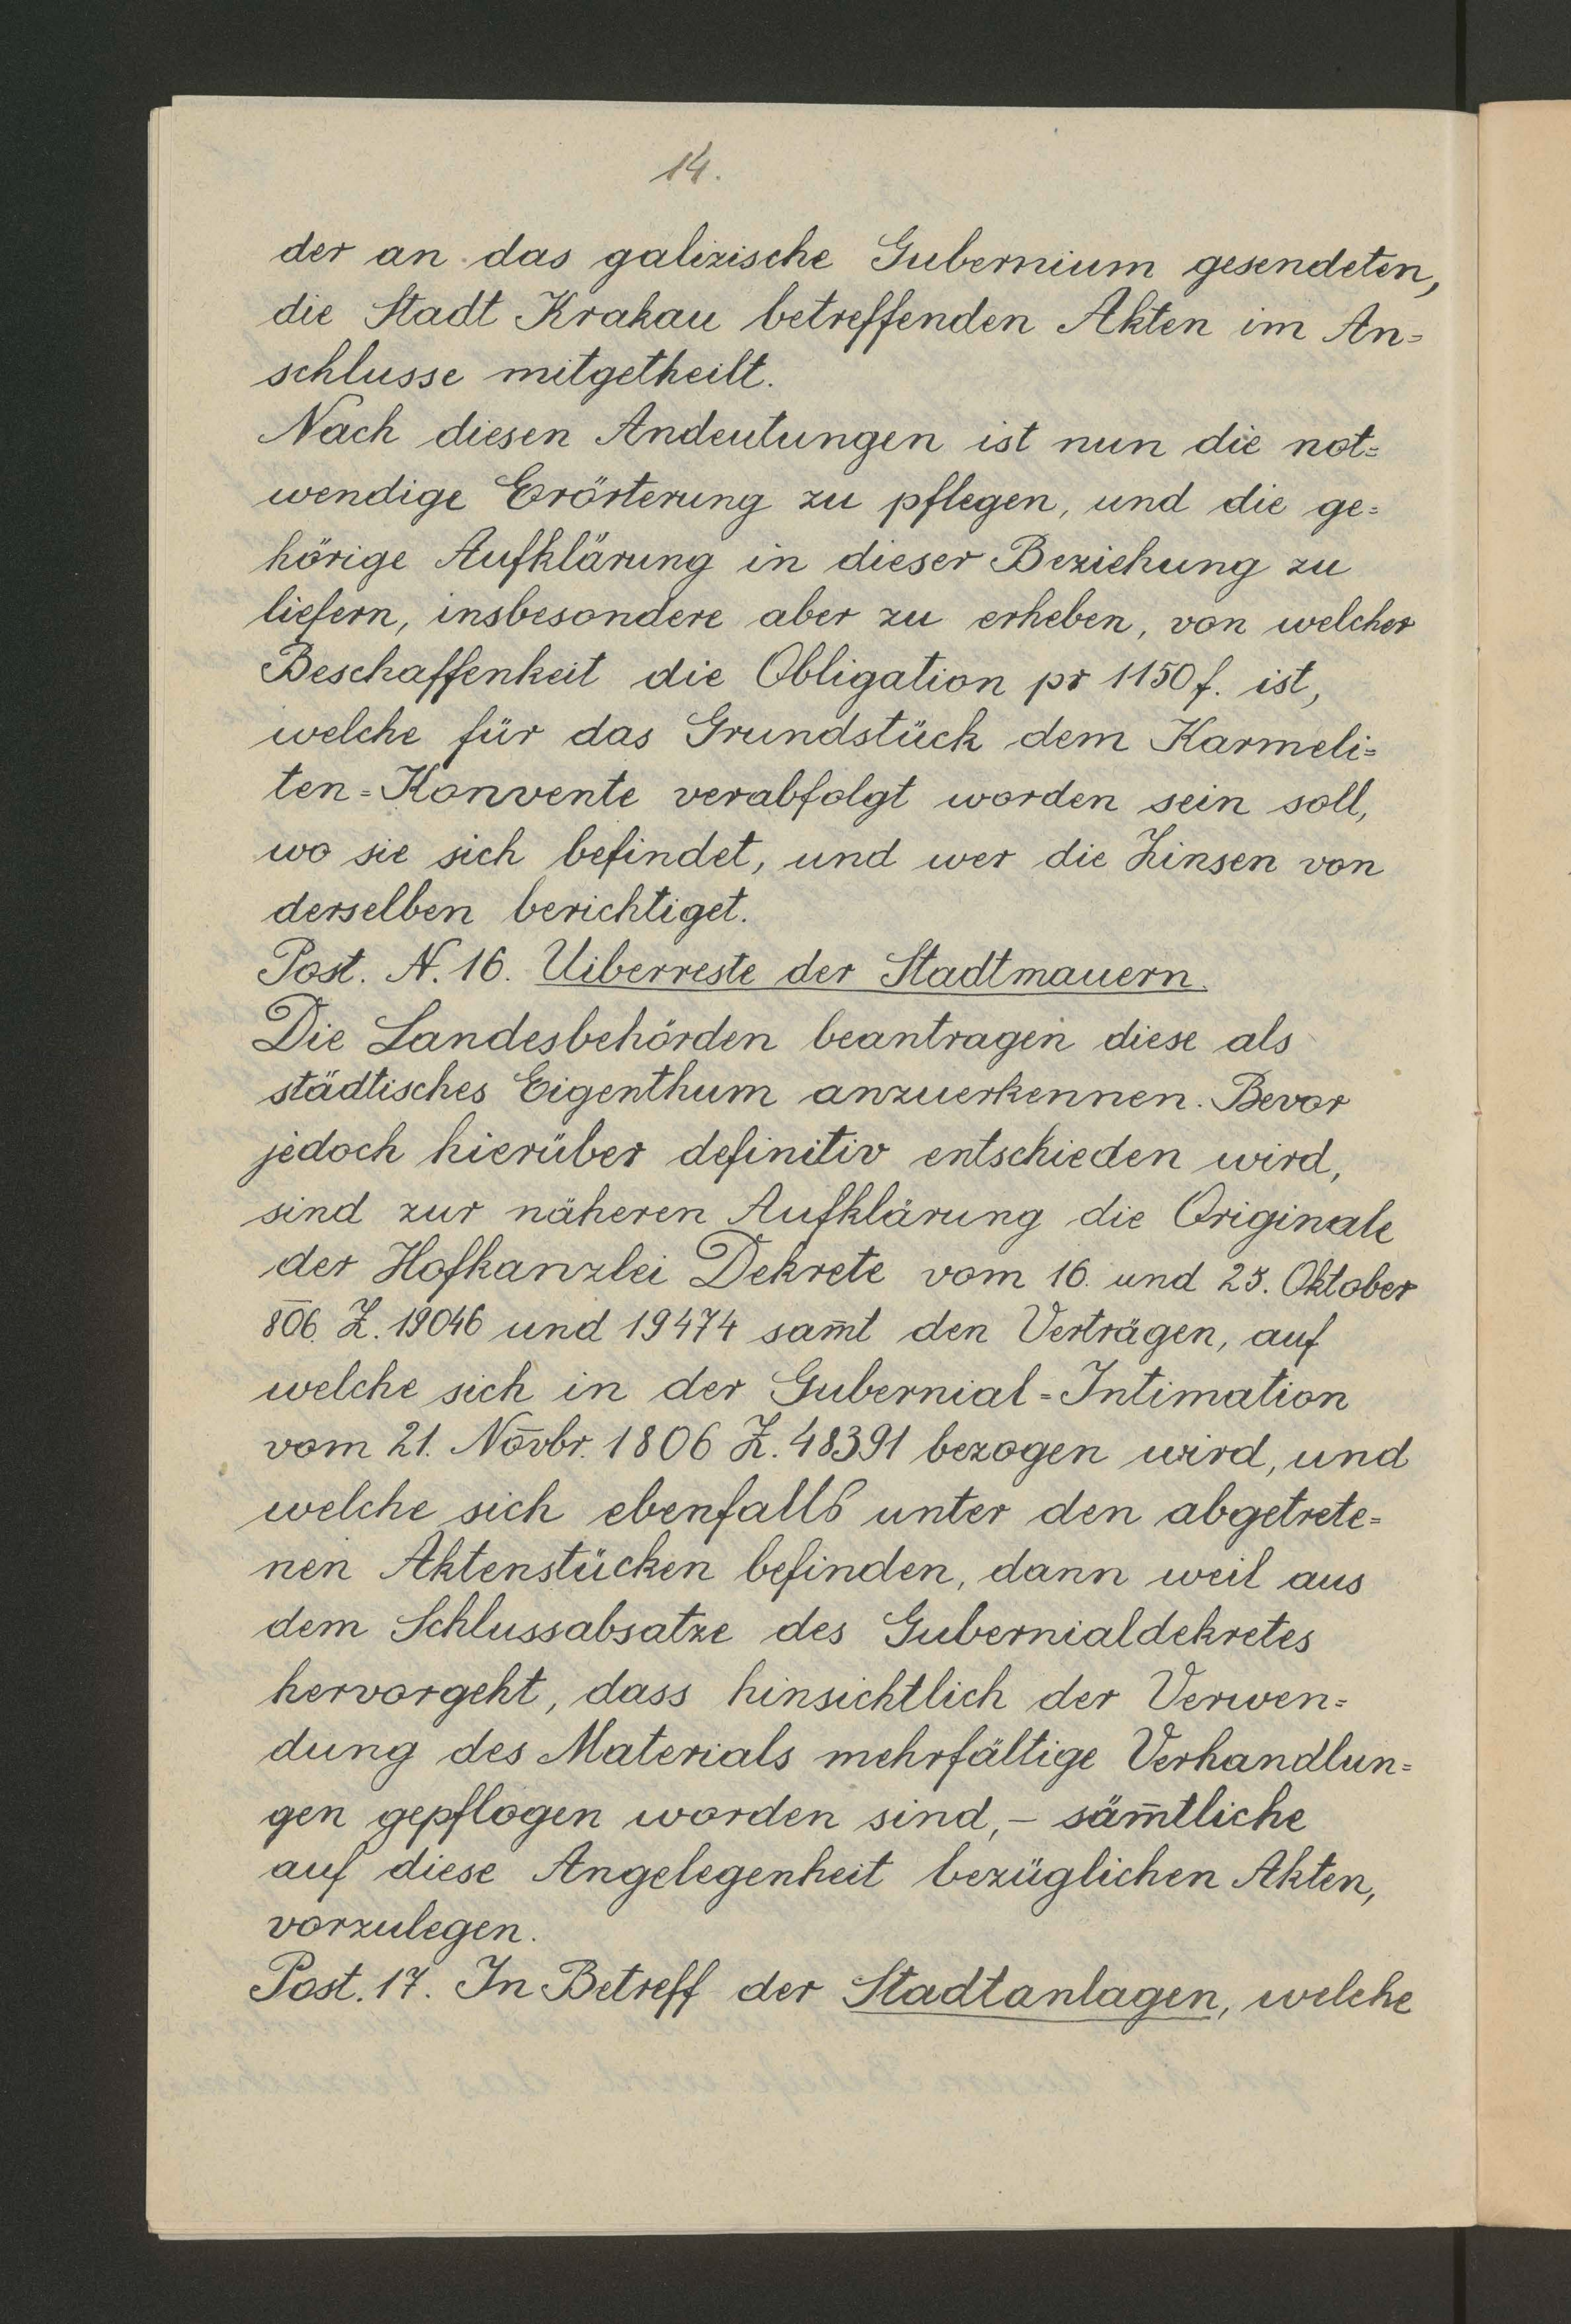 14.
der an das galizische Gubernium gesendeten,
die Stadt Krakau betreffenden Akten im An=
schlusse mitgetheilt.
Nach diesen Andeutungen ist nun die not=
wendige Erörterung zu pflegen, und die ge=
hörige Aufklärung in dieser Beziehung zu
liefern, insbesondere aber zu erheben, von welcher
Beschaffenheit die Obligation pr 1150 f. ist,
welche für das Grundstück dem Karmeli=
ten=Konvente verabfolgt worden sein soll,
wo sie sich befindet, und wer die Zinsen von
derselben berichtiget.
Post. N. 16. Uiberreste der Stadtmauern.
Die Landesbehörden beantragen diese als
städtisches Eigenthum anzuerkennen. Bevor
jedoch hierüber definitiv entschieden wird,
sind zur näheren Aufklärung die Originale
der Hofkanzlei Dekrete vom 16. und 23. Oktober
806. Z. 19046 und 19474 sam̄t den Verträgen, auf
welche sich in der Gubernial=Intimation
vom 21. Nōvbr. 1806 Z. 48391 bezogen wird, und
welche sich ebenfalls unter den abgetrete=
nen Aktenstücken befinden, dann weil aus
dem Schlussabsatze des Gubernialdekretes
hervorgeht, dass hinsichtlich der Verwen=
dung des Materials mehrfältige Verhandlun=
gen gepflogen worden sind, – säm̄tliche
auf diese Angelegenheit bezüglichen Akten,
vorzulegen.
Post. 17. In Betreff der Stadtanlagen, welche